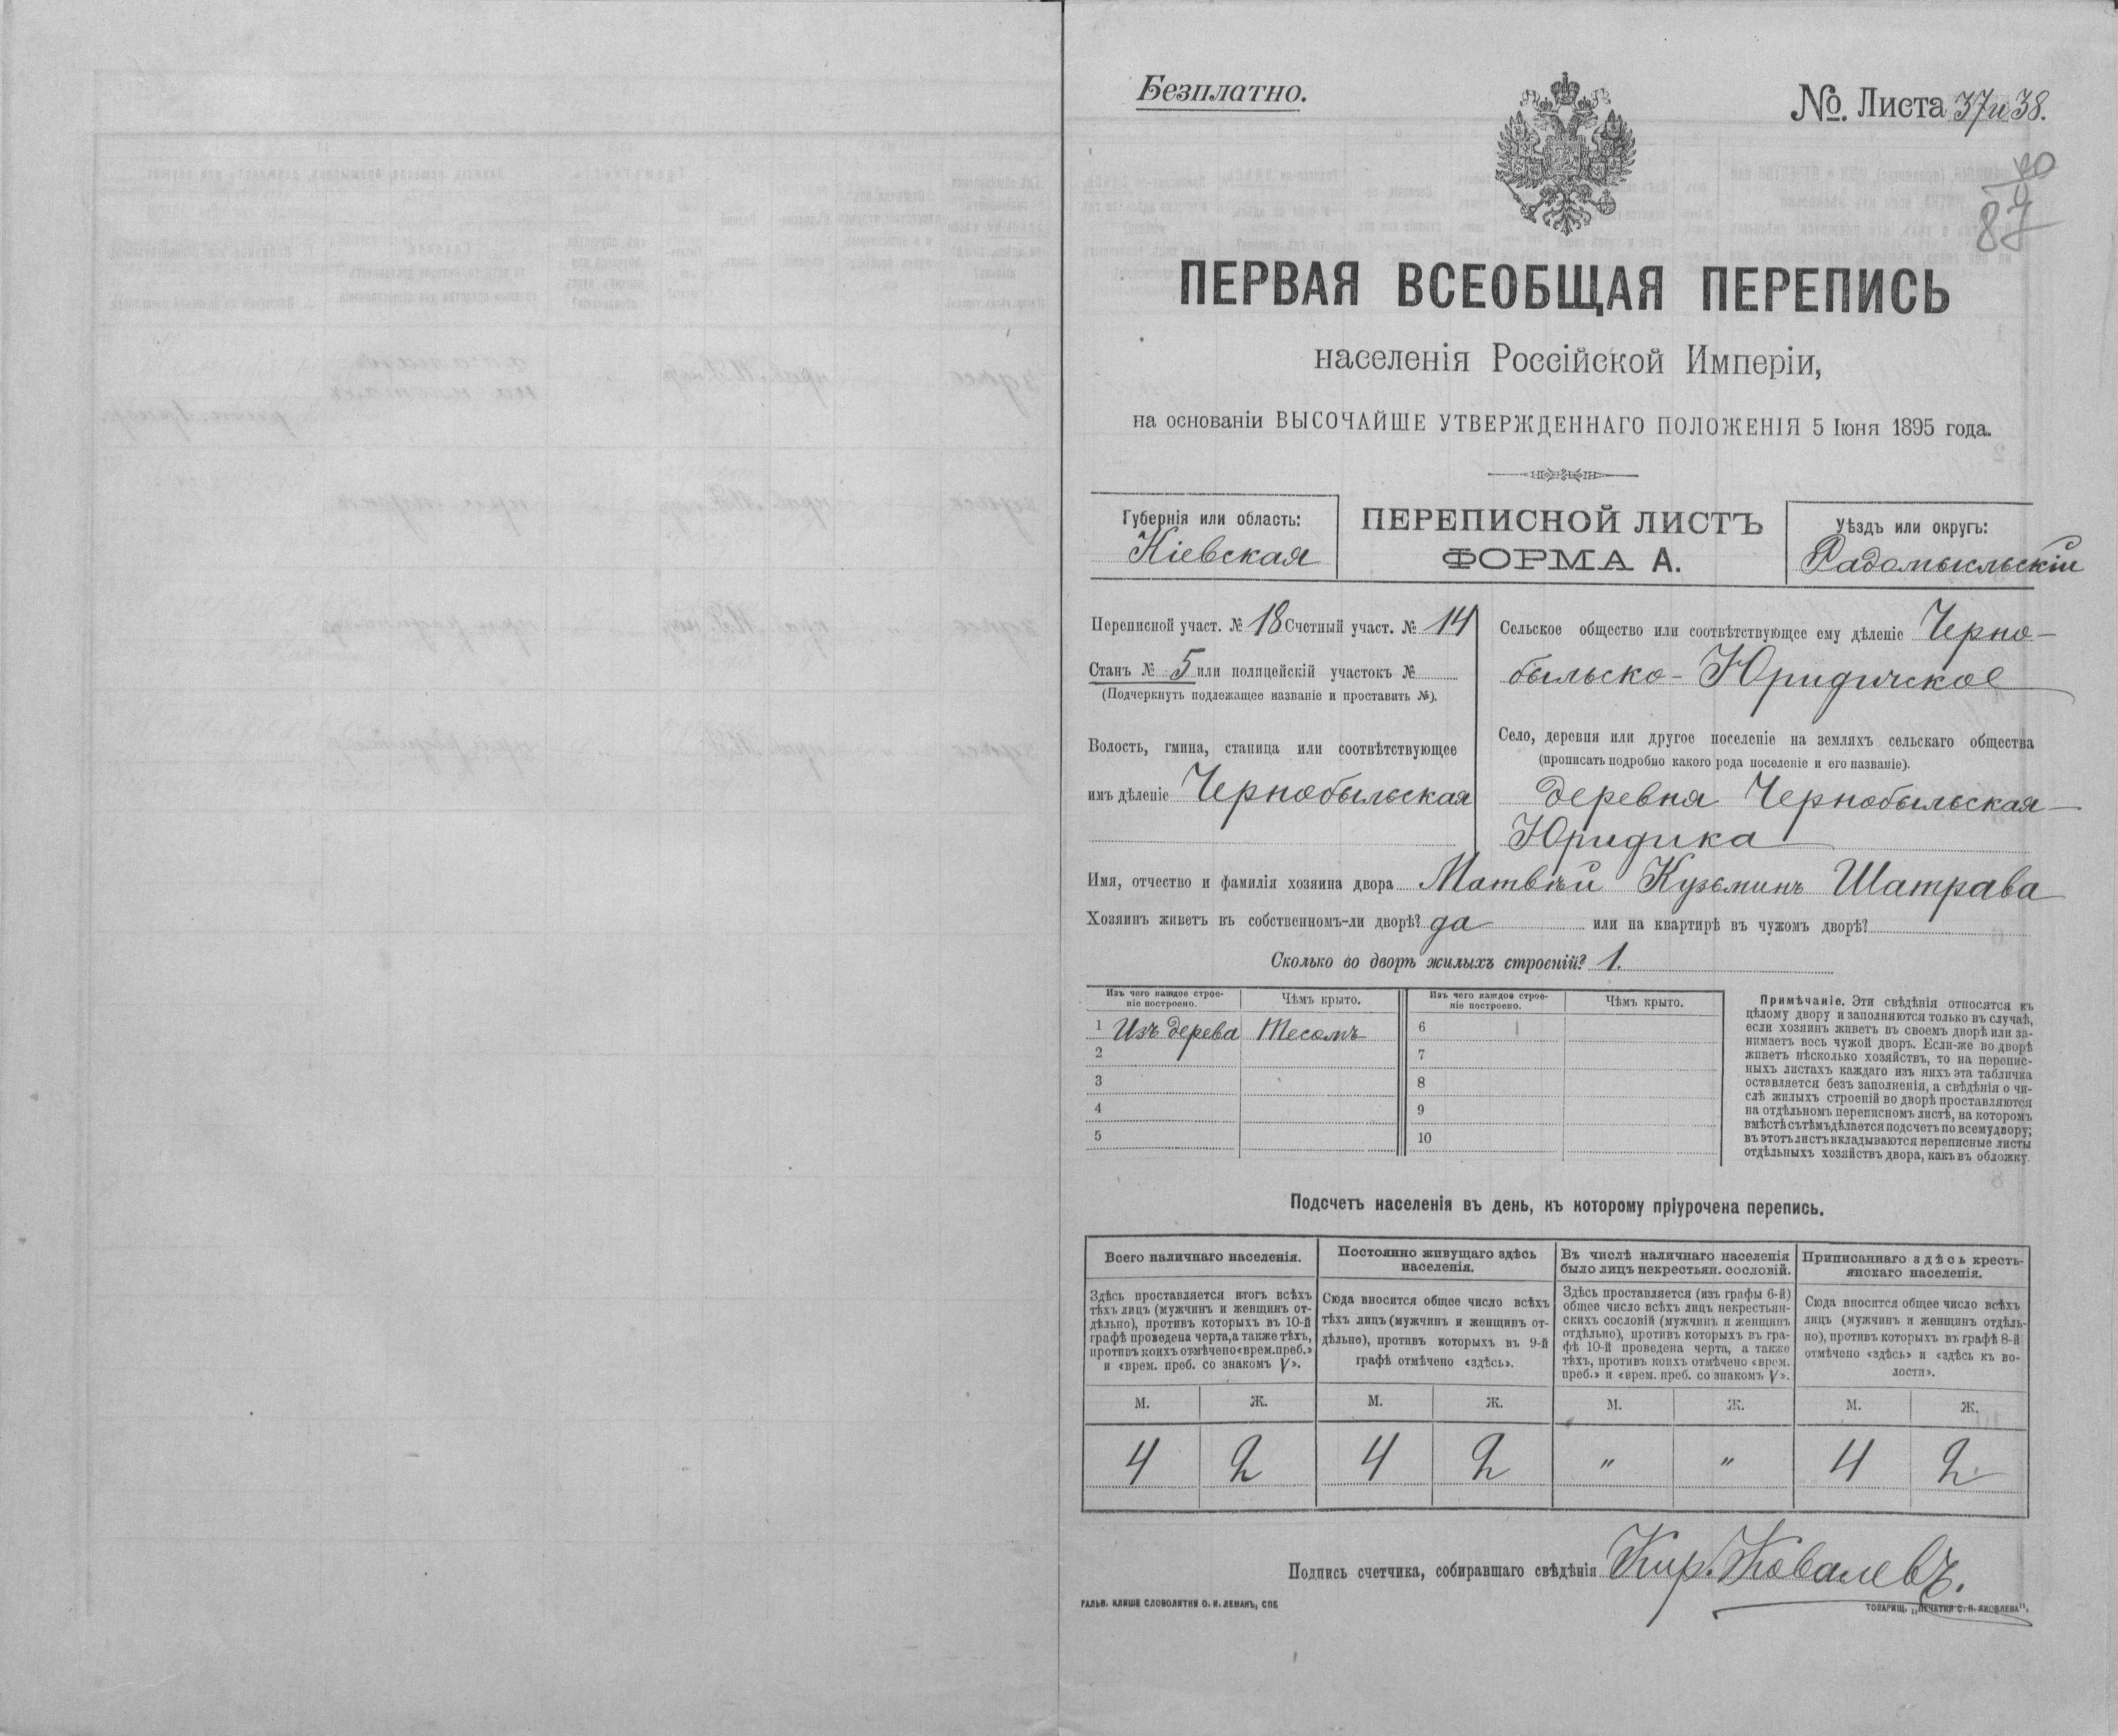 Безплатно.
№. Листа 37 и 38.
40
87
ПЕРВАЯ ВСЕОБЩАЯ ПЕРЕПИСЬ
населенія Россійской Имперіи,
на основаніи ВЫСОЧАЙШЕ УТВЕРЖДЕННАГО ПОЛОЖЕНІЯ 5 Іюня 1895 года.
Губернія или область:
Кіевская
ПЕРЕПИСНОЙ ЛИСТЪ
ФОРМА А.
Уѣздъ или округъ:
Радомысльскій
Переписной участ. № 18 Счетный участ. № 14
Станъ № 5 или полицейскій участокъ №
(Подчеркнуть подлежащее названіе и проставить №).
Волость, гмина, станица или соотвѣтствующее
имъ дѣленіе Чернобыльская
Сельское общество или соотвѣтствующее ему дѣленіе Черно-
быльско-Юридичское
Село, деревня или другое поселеніе на земляхъ сельскаго общества
(прописать подробно какого рода поселеніе и его названіе).
деревня Чернобыльская-
Юридика
Имя, отчество и фамилія хозяина двора Матвѣй Кузьминъ Шатрава
Хозяинъ живетъ въ собственномъ-ли дворѣ? да или на квартирѣ въ чужомъ дворѣ?
Сколько во дворѣ жилыхъ строеній? 1.
Изъ чего каждое строе-
ніе построено.
Чѣмъ крыто.
Изъ чего каждое строе-
ніе построено.
Чѣмъ крыто.
1 Изъ дерева Тесомъ
2
3
4
5
6
7
8
9
10
Примѣчаніе. Эти свѣдѣнія относятся къ
цѣлому двору и заполняются только въ случаѣ,
если хозяинъ живетъ въ своемъ дворѣ или за-
нимаетъ весь чужой дворъ. Если-же во дворѣ
живетъ нѣсколько хозяйствъ, то на перепис-
ныхъ листахъ каждаго изъ нихъ эта табличка
оставляется безъ заполненія, а свѣдѣнія о чи-
слѣ жилыхъ строеній во дворѣ проставляются
на отдѣльномъ переписномъ листѣ, на которомъ
вмѣстѣ съ тѣмъ дѣлается подсчетъ по всему двору;
въ этотъ листъ вкладываются переписные листы
отдѣльныхъ хозяйствъ двора, какъ въ обложку.
Подсчетъ населенія въ день, къ которому пріурочена перепись.
Всего наличнаго населенія.
Здѣсь проставляется итогъ всѣхъ
тѣхъ лицъ (мужчинъ и женщинъ от-
дѣльно), противъ которыхъ въ 10-й
графѣ проведена черта, а также тѣхъ,
противъ коихъ отмѣчено «врем. преб.»
и «врем. преб. со знакомъ V».
Постоянно живущаго здѣсь
населенія.
Сюда вносится общее число всѣхъ
тѣхъ лицъ (мужчинъ и женщинъ от-
дѣльно), противъ которыхъ въ 9-й
графѣ отмѣчено «здѣсь».
Въ числѣ наличнаго населенія
было лицъ некрестьян. сословій.
Здѣсь проставляется (изъ графы 6-й)
общее число всѣхъ лицъ некрестьян-
скихъ сословій (мужчинъ и женщинъ
отдѣльно), противъ которыхъ въ гра-
фѣ 10-й проведена черта, а также
тѣхъ, противъ коихъ отмѣчено «врем.
преб.» и «врем. преб. со знакомъ V».
Приписаннаго здѣсь кресть-
янскаго населенія.
Сюда вносится общее число всѣхъ
лицъ (мужчинъ и женщинъ отдѣль-
но), противъ которыхъ въ графѣ 8-й
отмѣчено «здѣсь» и «здѣсь къ во-
лости».
М. Ж. М. Ж. М. Ж. М. Ж.
4 2 4 2 " " 4 2
Подпись счетчика, собиравшаго свѣдѣнія Кир. Ковалевъ.
ГАЛЬВ. КЛИШЕ СЛОВОЛИТНИ О. И. ЛЕМАНЪ, СПБ
ТОВАРИЩ. „ПЕЧАТНЯ С. П. ЯКОВЛЕВА".